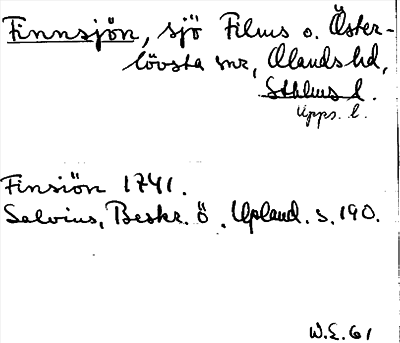 Finnsjön, sjö Films o. Öster-
lövsta snr, Olands hd,
Sthlms l.
Upps. l.
Finsiön 1741.
Salvius, Beskr. ö. Upland. s. 190.
W.E. 61